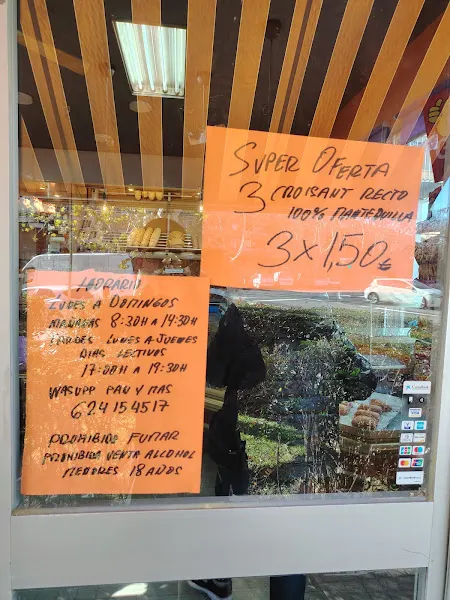 SUPER OFERTA
3 CROISANT RECTO
100% MANTEQUILLA
3 x 1,50€
HORARIO
LUNES A DOMINGOS
MAÑANAS 8:30H A 14:30H
TARDES LUNES A JUEVES
DIAS LECTIVOS
17:00H A 19:30H
WASUPP PAN Y MAS
624154517
PROHIBIDO FUMAR
PROHIBIDA VENTA ALCOHOL
MENORES 18 AÑOS
CaixaBank
VISA